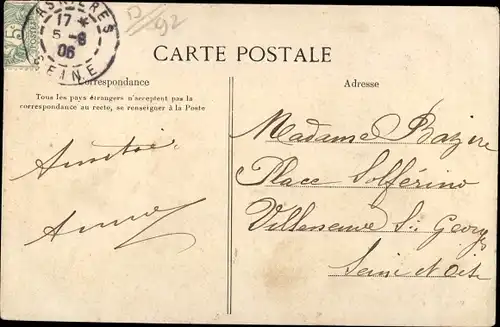 ASNIERES
17 *
5 -9
06
SEINE
5c
92
CARTE POSTALE
Correspondance
Tous les pays étrangers n'acceptent pas la
correspondance au recto, se renseigner à la Poste
Adresse
Amitiés
Anna
Madame Bazire
Place Solférino
Villeneuve St Georges
Seine et Oise